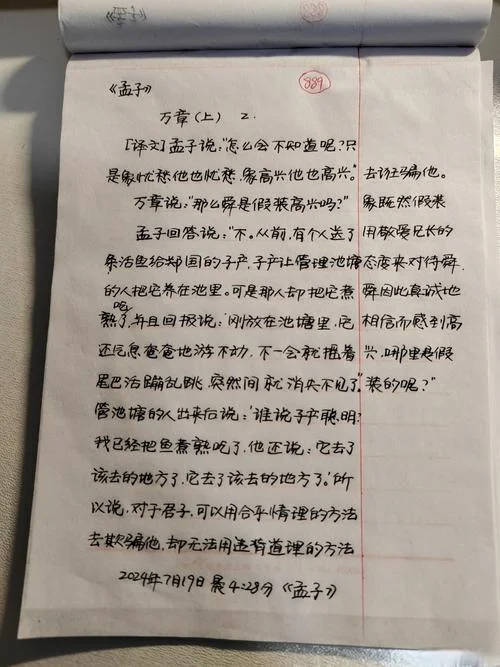 889
《孟子》
万章(上) 2.
[译文]孟子说:“怎么会不知道呢?只
是象忧愁他也忧愁,象高兴他也高兴。”
万章说:“那么舜是假装高兴吗?”
孟子回答说:“不。从前,有个人送了
条活鱼给郑国的子产,子产让管理池塘
的人把它养在池里。可是那人却把它煮
熟吃了,并且回报说:‘刚放在池塘里,它
还气息奄奄地游不动,不一会就摇着
尾巴活蹦乱跳,突然间就消失不见了。’
管池塘的人出来后说:‘谁说子产聪明?
我已经把鱼煮熟吃了,他还说:它去了
该去的地方了,它去了该去的地方了。’所
以说,对于君子,可以用合乎情理的方法
去欺骗他,却无法用违背道理的方法
去诓骗他。
象既然假装
用敬爱兄长的
态度来对待舜,
舜因此真诚地
相信而感到高
兴,哪里是假
装的呢?”
2024年7月19日晨4:28分《孟子》